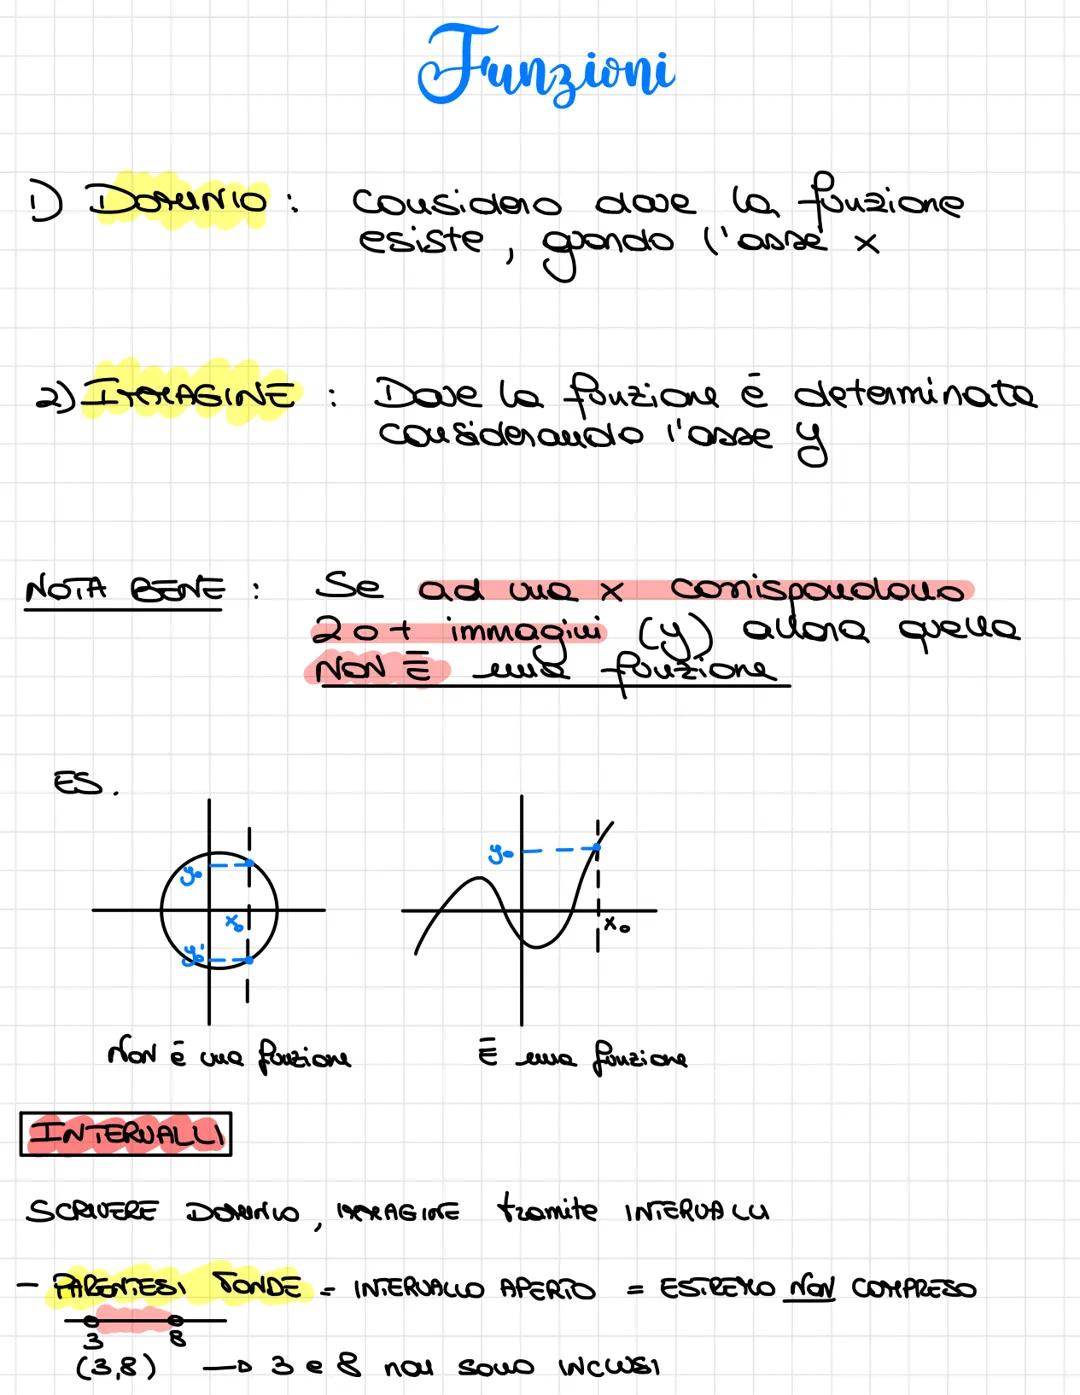 Funzioni
1) DOMINIO : considero dove la funzione
esiste, guardo l'asse x
2) IMMAGINE : Dove la funzione è determinata
considerando l'asse y
NOTA BENE : Se ad una x corrispondono
2 o + immagini (y) allora quella
NON È una funzione
ES.
y₀
x₀
y₀'
y₀
x₀
Non è una funzione
È una funzione
INTERVALLI
SCRIVERE DOMINIO, IMMAGINE tramite INTERVALLI
- PARENTESI TONDE = INTERVALLO APERTO = ESTREMO NON COMPRESO
3 8
(3,8) → 3 e 8 non sono INCLUSI